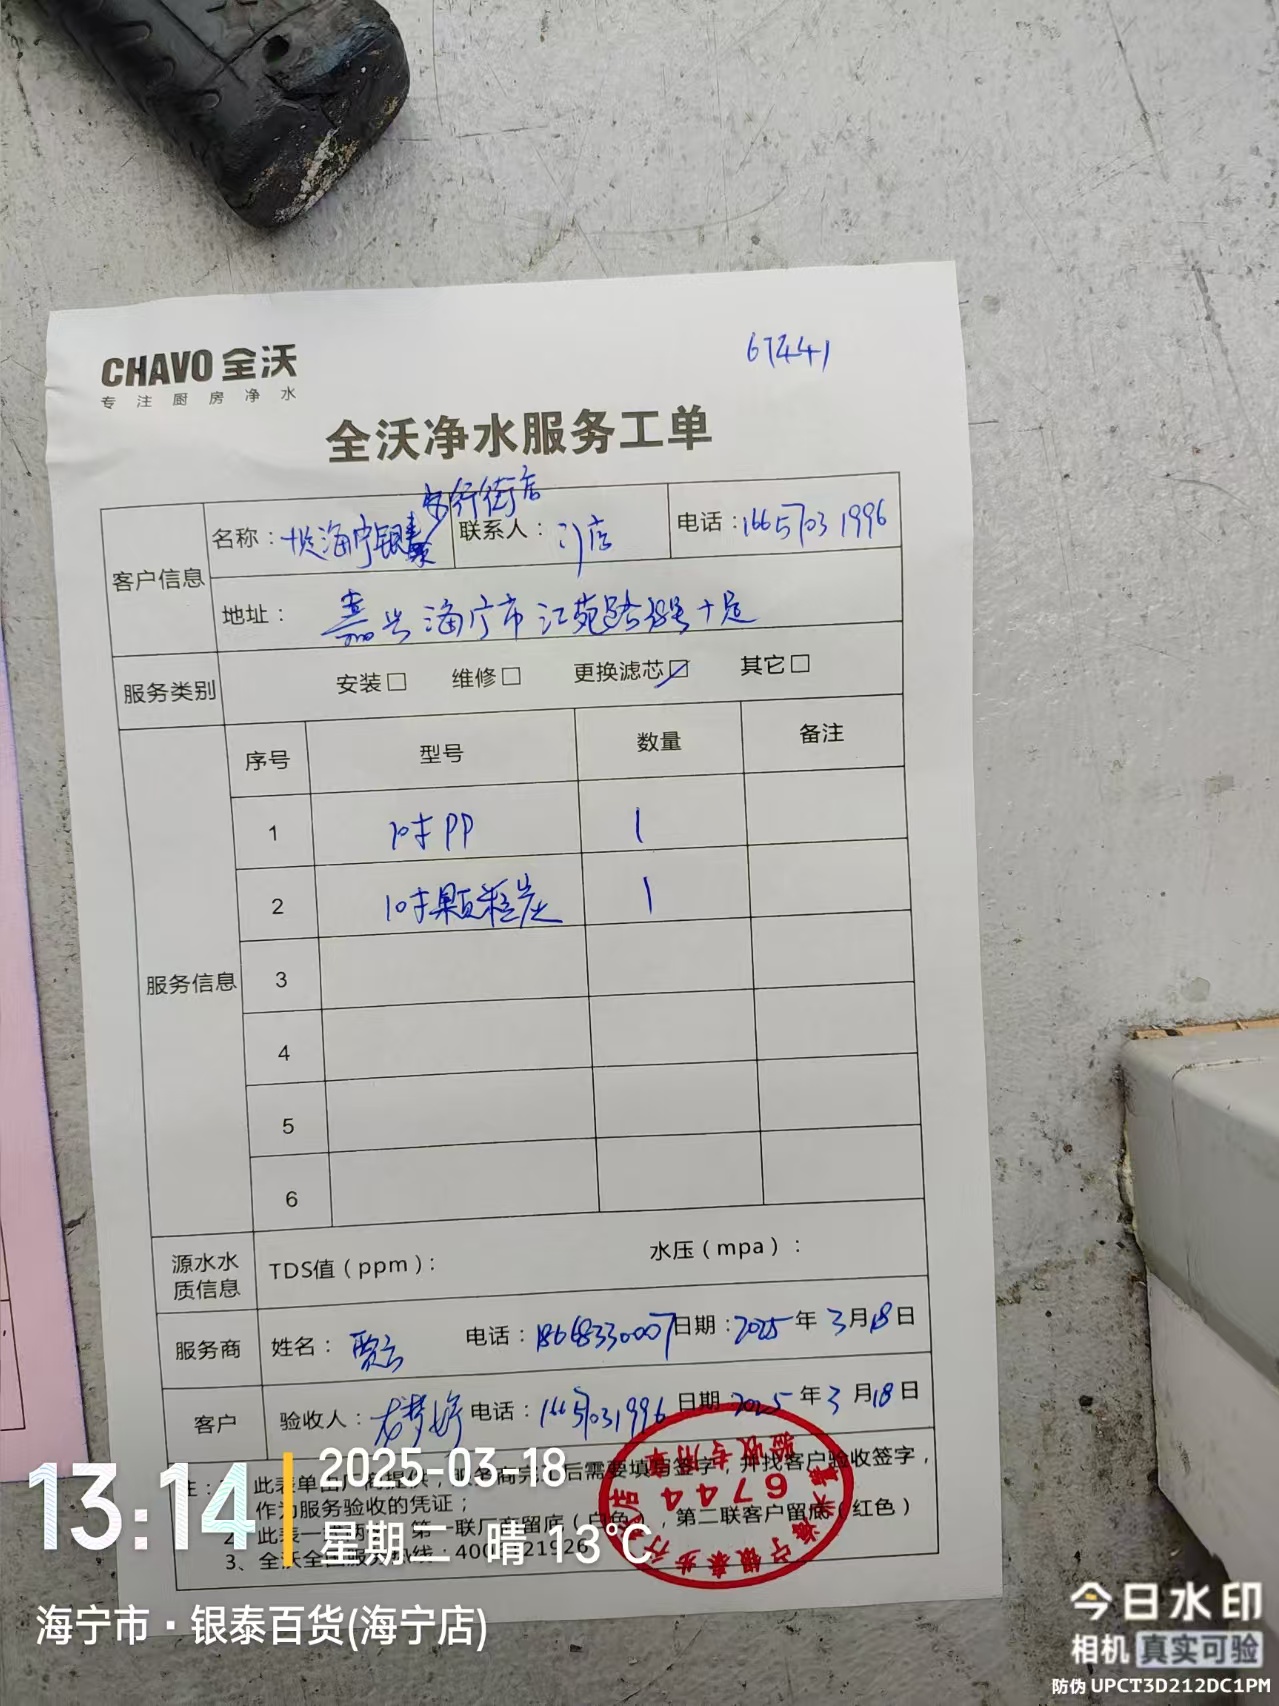 CHAVO 全沃
专注厨房净水
67441
全沃净水服务工单
步行街店
客户信息 名称: 海宁银泰 联系人: 门店 电话:16657031996
地址: 嘉兴海宁市江苑路
服务类别 安装□ 维修□ 更换滤芯☑ 其它□
服务信息 序号 型号 数量 备注
1 10寸PP 1
2 10寸颗粒炭 1
3
4
5
6
源水水质信息 TDS值(ppm): 水压(mpa):
服务商 姓名: 电话:18668330007 日期:2025年3月18日
客户 验收人: 电话:16657031996 日期:2025年3月18日
注: 此表单由厂商提供, 服务商完 后需要填写签字,并找客户验收签字,
作为服务验收的凭证;
2、此表一 两 第一联厂商留底(白色),第二联客户留底(红色)
3、全沃全国服务热线:400 21926
海宁银泰步行
6744
验收专用章
13:14
2025-03-18
星期二 晴 13°C
海宁市·银泰百货(海宁店)
今日水印
相机 真实可验
防伪 UPCT3D212DC1PM